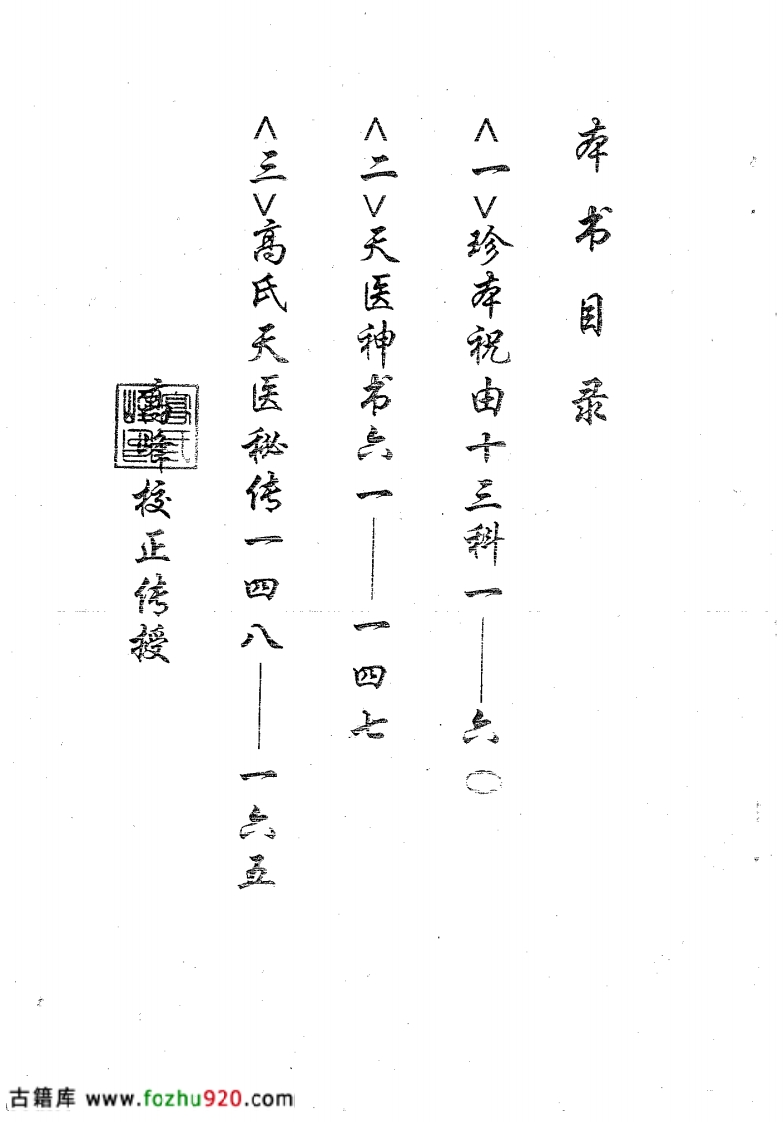 本书目录
<一>珍本祝由十三科一——六〇
<二>天医神书六一——一四七
<三>高氏天医秘传一四八——一六五
高峰校正传授
古籍库 www.fozhu920.com